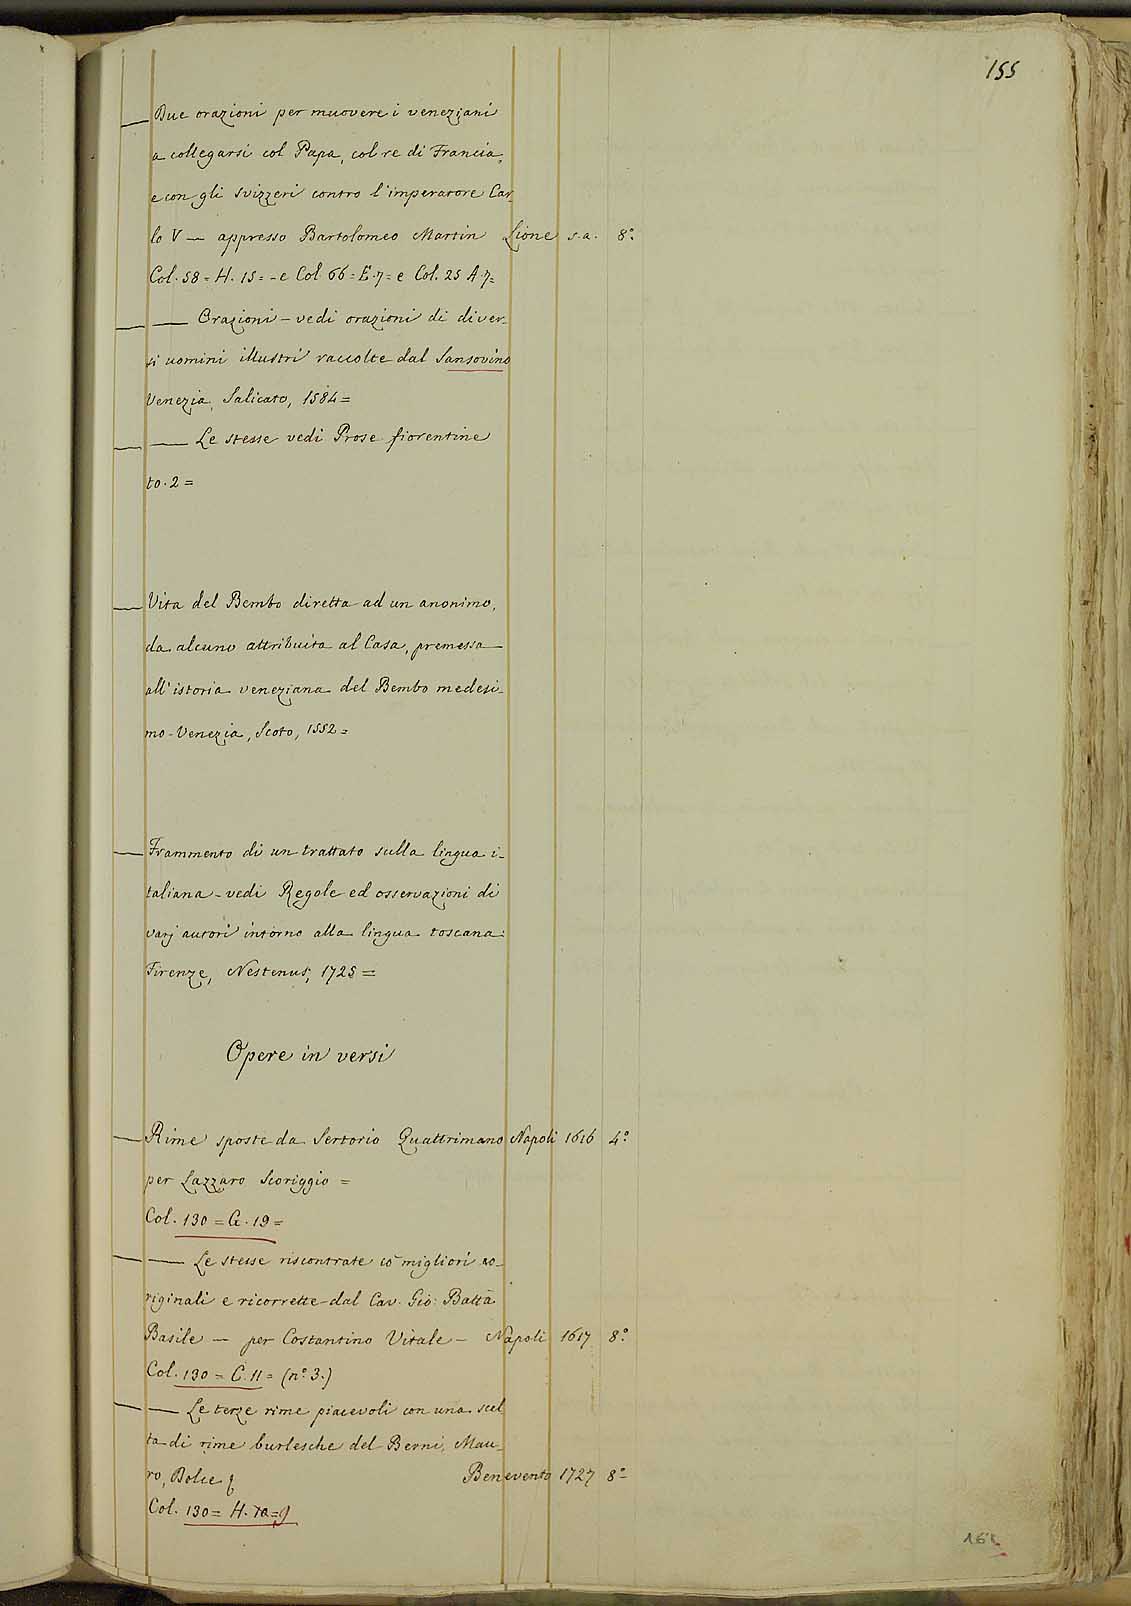 155
— Due orazioni per muovere i veneziani
a collegarsi col Papa, col re di Francia,
e con gli svizzeri contro l'imperatore Car-
lo V — appresso Bartolomeo Martin Lione s.a. 8.°
Col. 58 = H. 15 = - e Col 66 = E. 7 = e Col. 25 A. 7 =
— — Orazioni - vedi orazioni di diver-
si uomini illustri raccolte dal Sansovino
Venezia, Salicato, 1584 =
— — Le stesse vedi Prose fiorentine
to. 2 =
— Vita del Bembo diretta ad un anonimo,
da alcuno attribuita al Casa, premessa
all'istoria veneziana del Bembo medesi-
mo - Venezia, Scoto, 1552 =
— Frammento di un trattato sulla lingua i-
taliana - vedi Regole ed osservazioni di
varj autori intorno alla lingua toscana:
Firenze, Nestenus, 1725 =
Opere in versi
— Rime sposte da Sertorio Quattrimano Napoli 1616 4.°
per Lazzaro Scoriggio =
Col. 130 = G. 19 =
— — Le stesse riscontrate cō migliori o-
riginali e ricorrette dal Cav. Gio: Batta
Basile — per Costantino Vitale — Napoli 1617 8.°
Col. 130 = C. 11 = (n.° 3.)
— — Le terze rime piacevoli con una scel
ta di rime burlesche del Berni, Mau-
ro, Dolce Benevento 1727 8.°
Col. 130 = H. 10 = 9